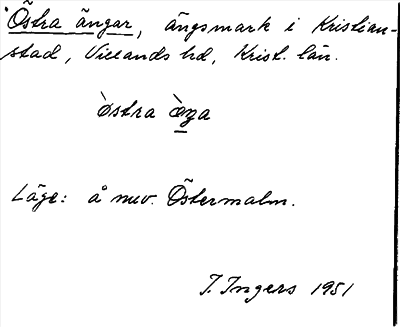 Östra ängar, ängsmark i Kristian-
stad, Villands hd, Krist. län.
òstra æ̀ŋa
Läge: å nuv. Östermalm.
I. Ingers 1951